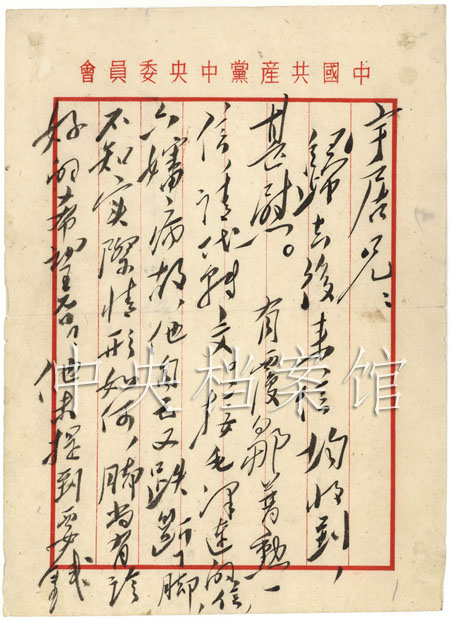 中國共産黨中央委員會
宇居兄：
歸去後来信均收到，
甚慰。有覆鄒普勳一
信，請代轉交。接毛澤連的信，
六嬸病故，他自己又跌斷了脚，
不知實際情形如何，脚尚有診
好的希望否，他未提到要錢
中央档案馆